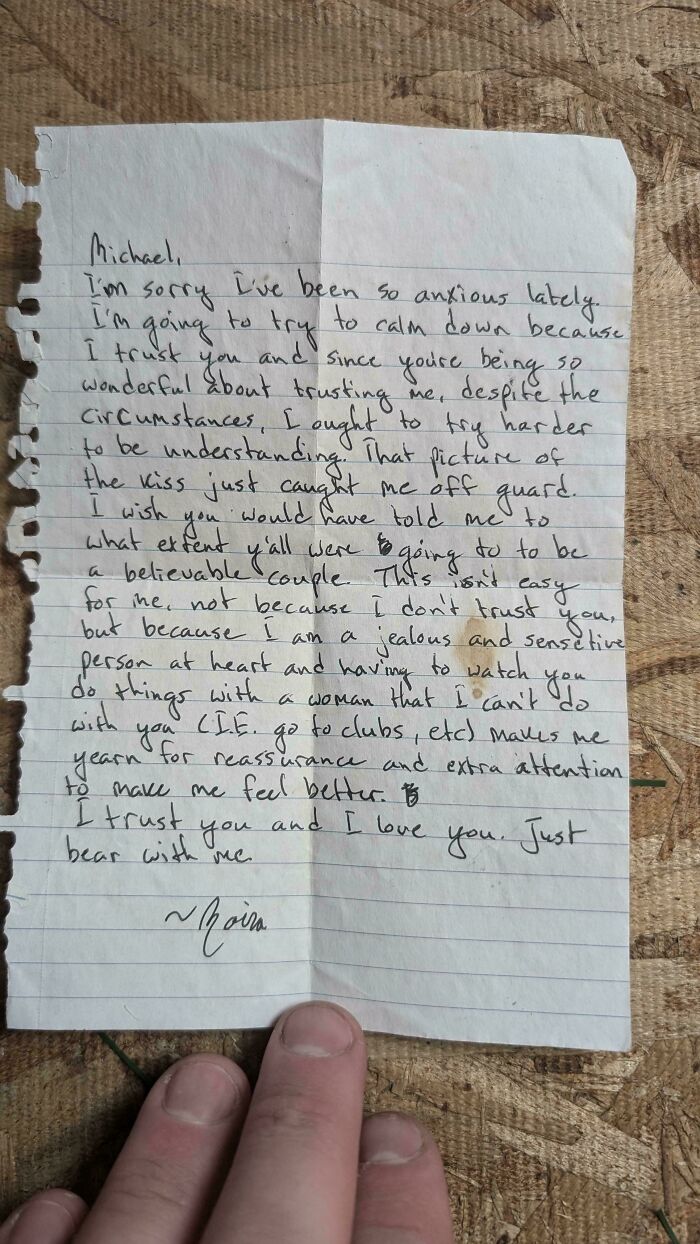 Michael,
I'm sorry I've been so anxious lately.
I'm going to try to calm down because
I trust you and since youre being so
wonderful about trusting me, despite the
circumstances, I ought to try harder
to be understanding. That picture of
the kiss just caught me off guard.
I wish you would have told me to
what extent y'all were going to to be
a believable couple. This isn't easy
for me, not because I don't trust you,
but because I am a jealous and sensetive
person at heart and having to watch you
do things with a woman that I can't do
with you (I.E. go to clubs, etc) makes me
yearn for reassurance and extra attention
to make me feel better.
I trust you and I love you. Just
bear with me.